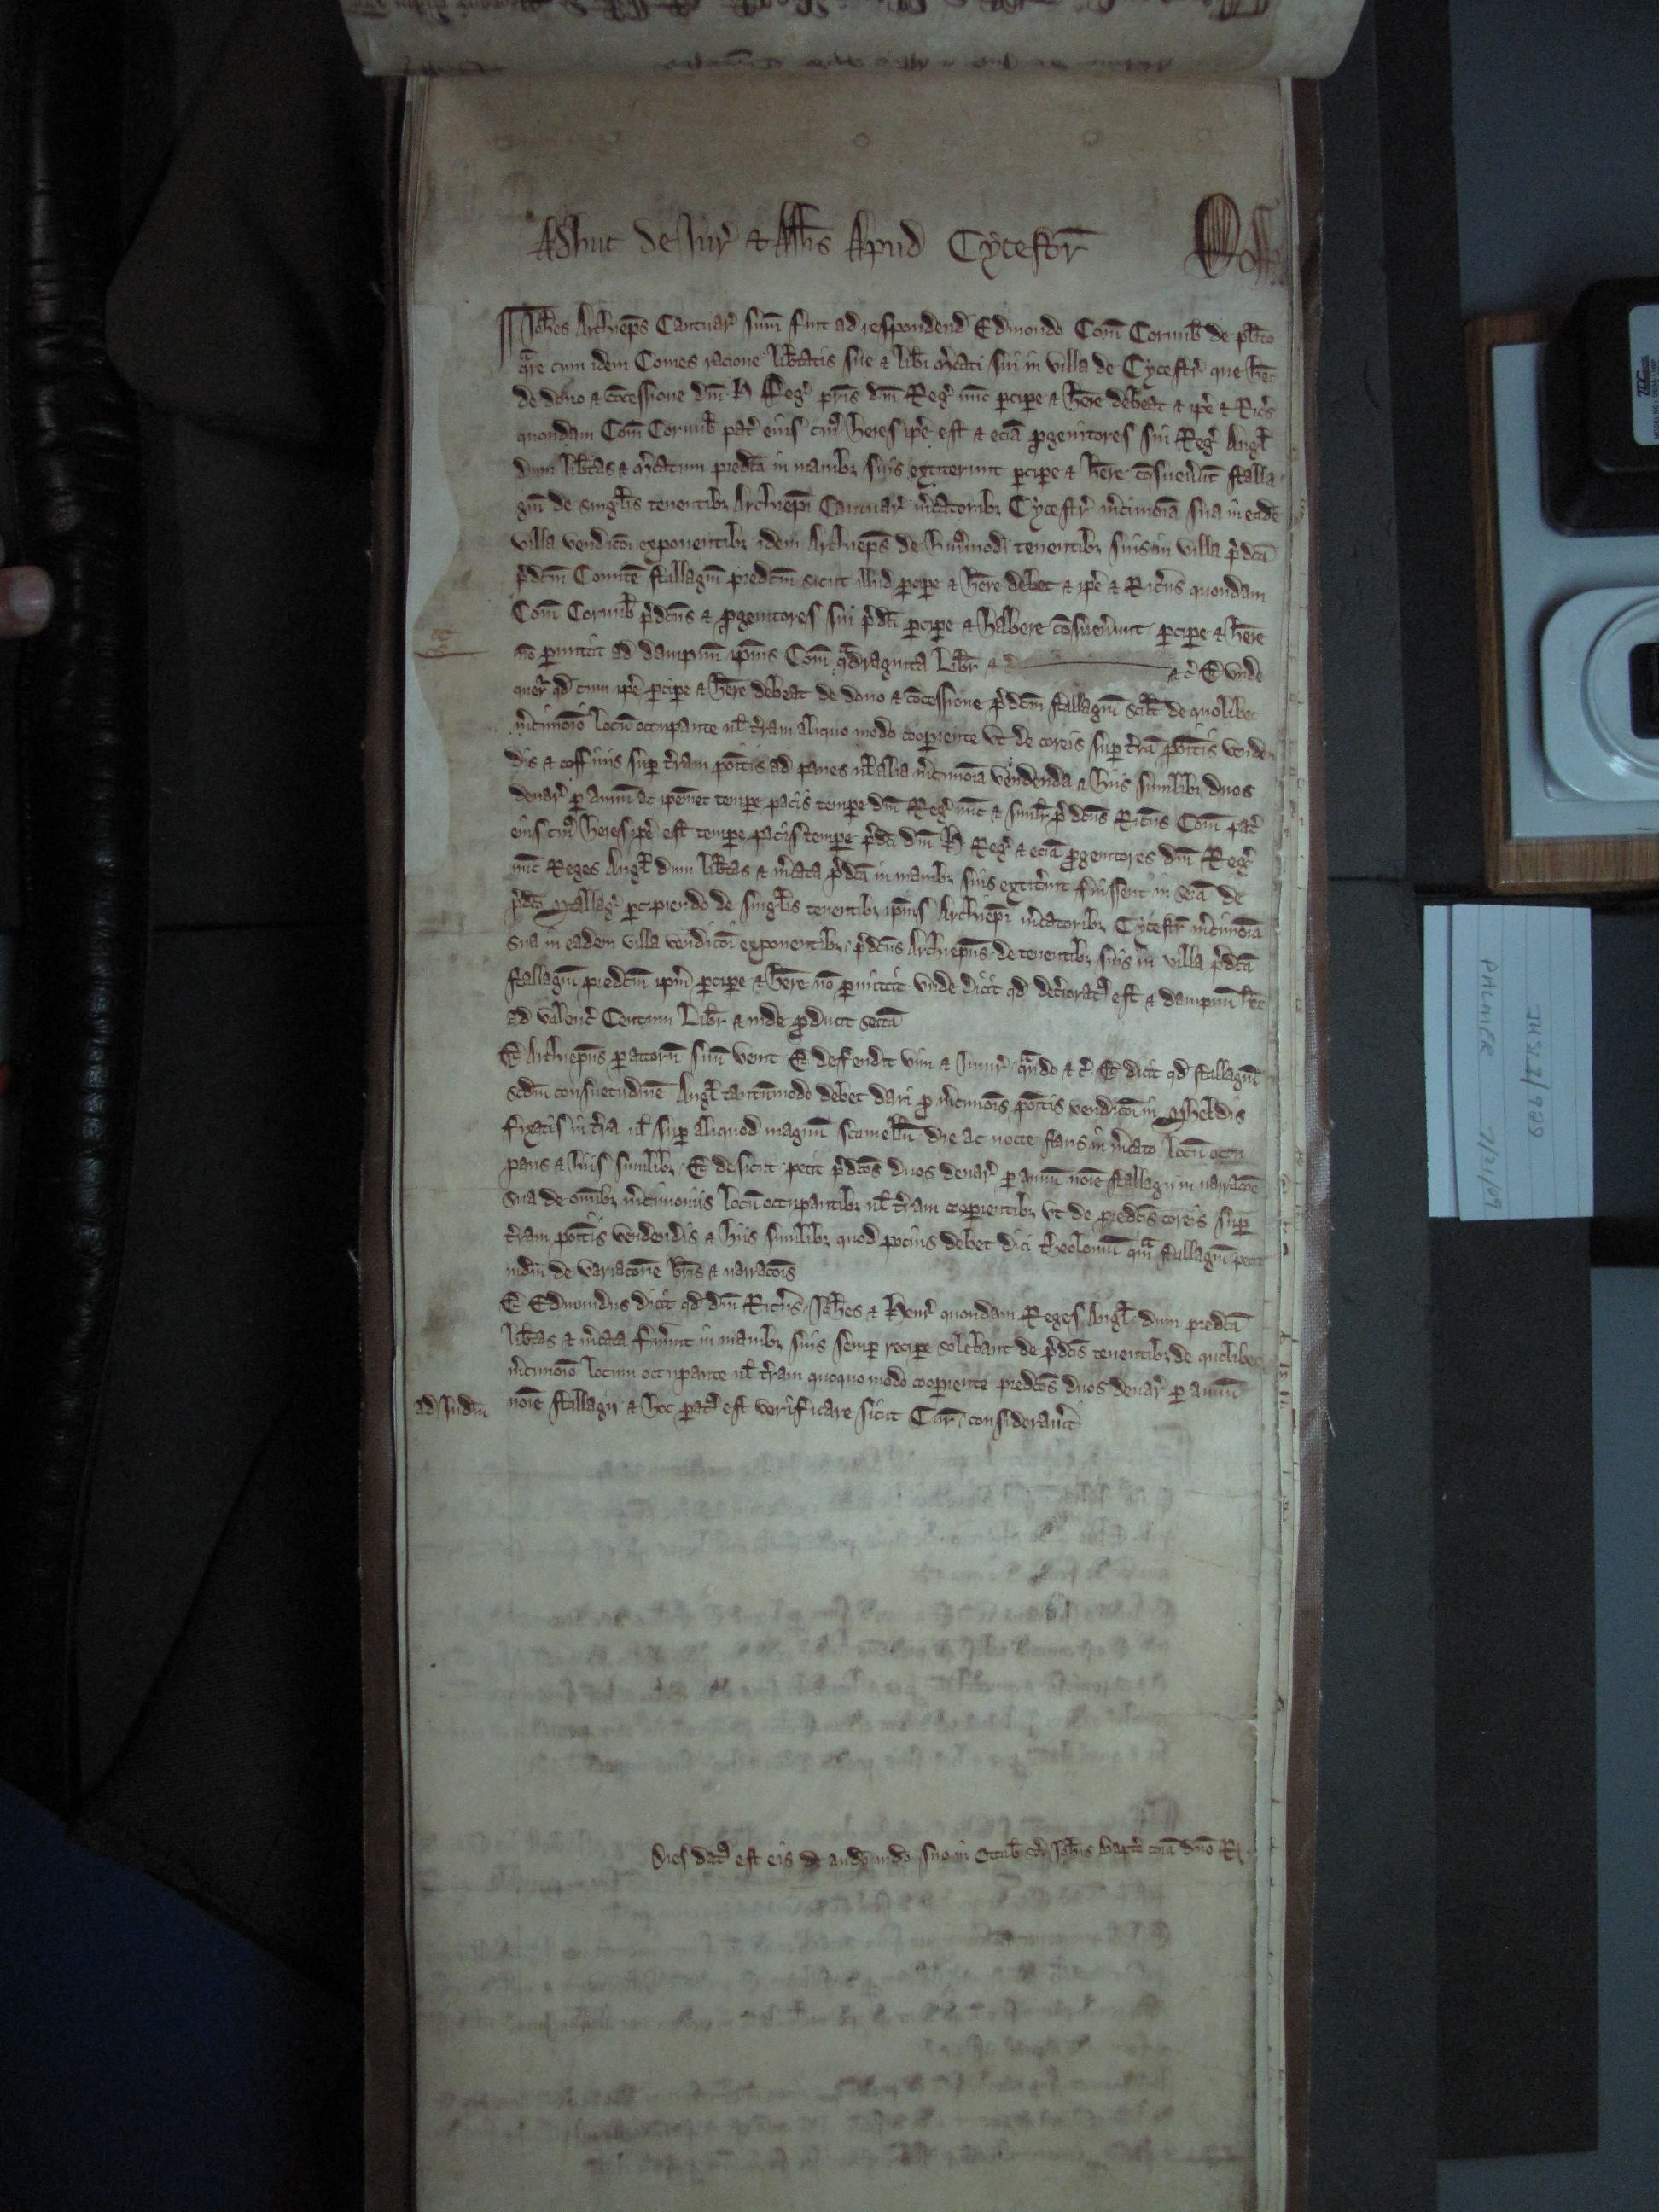 Adhuc de Jur̃ & Assis̃ Apud Cycestr̃
Joh̃es Archiep̃s Cantuar̃ sum̃ fuit ad respondend̃ Edmundo Com̃ Cornub̃ de pl̃ito
quare cum idem Comes racione lib̃tatis sue & lib̃i m̃cati sui in villa de Cycestr̃ que h̃et
de dono & c̃ocessione dñi H Reg̃ pr̃is dñi Reg̃ nũc p̃cip̃e & h̃ere debeat & ip̃e & Ric̃s
quondam Com̃ Cornub̃ pat̃ eius cui9 heres ip̃e est & eciã p̃genitores sui Reg̃ Angl̃
dum lib̃tas & m̃catum predc̃a in manib3 suis extiterunt p̃cip̃e & h̃ere c̃osuev̑ũt stalla
giũ de singl̃is tenentib3 Archiep̃i Cantuar̃ m̃catorib3 Cycestr̃ m̃cimoĩa sua in eadẽ
villa vendicõi exponentib3 idem Archiep̃s de hui9modi tenentib3 suis in villa p̃dc̃a
p̃dc̃m Comitẽ stallagiũ predc̃m sicut illud p̃cip̃e & h̃ere debet & ip̃e & Ric̃us quondam
Com̃ Cornub̃ p̃dc̃us & p̃genitores sui p̃dc̃i p̃cip̃e & habere c̃osuev̑unt p̃cip̃e & h̃ere
nõ p̃mittit ad dampnũ ip̃ius Com̃ quadraginta Libr̃ & c̃ Et unde
quer̃ qd̃ cum ip̃e p̃cip̃e & h̃ere debeat de dono & c̃ocessione p̃dc̃m stallagiũ scil̃t de quolibet
m̃cimoĩo locũ occupante ul̃ t̃ram aliquo modo coop̃iente ut de coreis sup̃ t̃rã po͠itis venden
dis & coffinis sup̃ t̃ram po͠itis ad panes ul̃ alia m̃cimoĩa vendenda & hiis similib3 duos
denar̃ p̃ annũ ac ipemet temp̃e pacis temp̃e dñi Reg̃ nũc & simil̃r p̃dc̃us Ric̃us Com̃ pat̃
eius cui9 heres ip̃e est temp̃e pacis temp̃e p̃dc̃i dñi H Reg̃ & eciã p̃genitores dñi Reg̃
nũc Reges Angl̃ dum lib̃tas & m̃cata p̃dc̃a in manib3 suis extit̃unt fuissent in seis̃a de
p̃dc̃o stallag̃ p̃cipiendo de singl̃is tenentib3 ip̃ius Archiep̃i m̃catorib3 Cycestr̃ m̃cimoĩa
sua in eadem villa vendicõi exponentib3 p̃dc̃us Archiep̃us de tenentib3 suis in villa p̃dc̃a
stallagiũ predc̃m ip̃m p̃cip̃e & h̃ere nõ p̃mittit unde dicit qd̃ det̃iorat9 est & dampnũ h̃et
ad valenc̃ Centum Libr̃ & inde p̃ducit sectã
Et Archiep̃us p̃ attorñ suũ venit Et defendit vim & Iniur̃ quando & c̃ Et dicit qd̃ stallagiũ
scdm̃ consuetudinẽ Angl̃ tantũmodo debet dari p̃ m̃cimoĩis po͠itis vendicõi in sheldis
fixatis in t̃ra ul̃ sup̃ aliquod magnũ scamellũ die ac nocte stans in m̃cato locũ occu
pans & hiis similib3 Et desicut petit p̃dc̃os duos denar̃ p̃ annũ noĩe stallagii in narracõe
sua de om̃ib3 m̃cimoniis locũ occupantib3 ul̃ t̃ram coop̃ientib3 ut de predc̃is coreis sup̃
t̃ram po͠itis vendendis & hiis similib3 quod pocius debet dici theoloniũ qua͠ stallagiũ petit
iudm̃ de variacõne br̃is & narracõis
Et Edmundus dicit qd̃ dñi Ric̃us Joh̃es & Henr̃ quondam Reges Angl̃ dum predc̃a
lib̃tas & m̃cata fuerũt in manib3 suis semp̃ recip̃e solebant de p̃dc̃is tenentib3 de quolibet
m̃cimoĩo locum occupante ul̃ t̃ram quoquo modo coop̃iente predc̃os duos denar̃ p̃ annũ
ad Judm̃ noĩe stallagii & hoc parat9 est verificare sicut Cur̃ considerav̑it
Dies dat9 est eis de audo iudo suo in Octab̃ sc̃i Joh̃is Bapt̃e corã dño R
PALMER
JUST 1/929
7/21/09